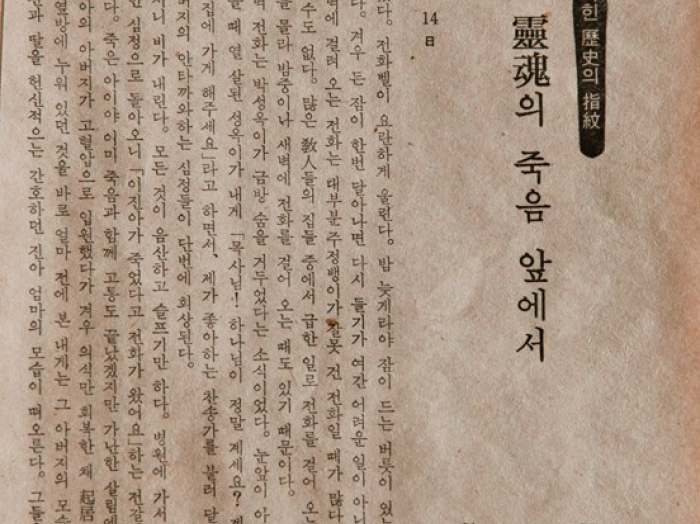 힌 歷史의 指紋
靈魂의 죽음 앞에서
14
日
다. 전화벨이 요란하게 울린다. 밤 늦게라야 잠이 드는 버릇이 있는
다. 겨우 든 잠이 한번 달아나면 다시 들기가 여간 어려운 일이 아니
벽에 걸려 오는 전화는 대부분 주정뱅이가 잘못 건 전화일 때가 많다
수도 없다. 많은 敎人들의 집들 중에서 급한 일로 전화를 걸어 오는
를 몰라 밤중이나 새벽에 전화를 걸어 오는 때도 있기 때문이다.
벽 전화는 박성옥이가 금방 숨을 거두었다는 소식이었다. 눈앞이 아
을 때 열 살된 성옥이가 내게 「목사님! 하나님이 정말 계세요? 계
집에 가게 해주세요」라고 하면서, 제가 좋아하는 찬송가를 불러 달
버지의 안타까와하는 심정들이 단번에 회상된다.
지니 비가 내린다. 모든 것이 음산하고 슬프기만 하다. 병원에 가서
한 심정으로 돌아오니 「이진아가 죽었다고 전화가 왔어요」하는 전갈
다. 죽은 아이야 이미 죽음과 함께 고통도 끝났겠지만 가난한 살림에
아의 아버지가 고혈압으로 입원했다가 겨우 의식만 회복한 채 起居
옆방에 누워 있던 것을 바로 얼마 전에 본 내게는 그 아버지의 모습
과 딸을 헌신적으는 간호하던 진아 엄마의 모습이 떠오른다. 그들